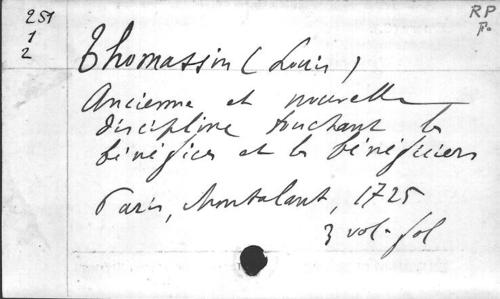 251
1
2
RP
Thomassin (Louis)
Ancienne et nouvelle
discipline touchant les
bénéfices et les bénéficiers
Paris, Montalant, 1725
3 vol. fol